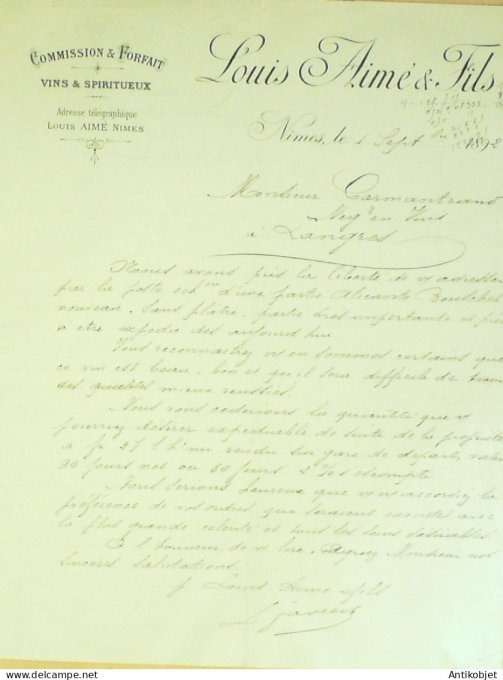 COMMISSION & FORFAIT
VINS & SPIRITUEUX
Adresse télégraphique
LOUIS AIMÉ NIMES
Louis Aimé & Fils
Nîmes, le 1 Sept 1892
Monsieur
Neg.t en Vins
à Langres
Nous avons pris la liberté de v adresser
par la poste d'une partie Alicante Bouschet
nouveau, sans plâtre, partie très importante et
a être expédié dès aujourd'hui
Vous reconnaitrez ns en sommes certains que
ce vin est beau, bon et qu'il sera difficile de
ses qualités mieux réussies.
Nous vous cèderions la quantité que v
pourriez désirer expédiable de suite de la propriété
a fr 27 l'h nu rendu sur gare de départ, valeur
90 jours net ou 30 jours 2 % escompte
Nous serions heureux que v ns accordiez la
préférence de vos ordres que seraient exécutés avec
la plus grande célérité et tous les soins désirables.
A l'honneur de v lire, Agréez Monsieur nos
sincères salutations
p Louis Aimé & fils
delcampe.net
Antikobjet